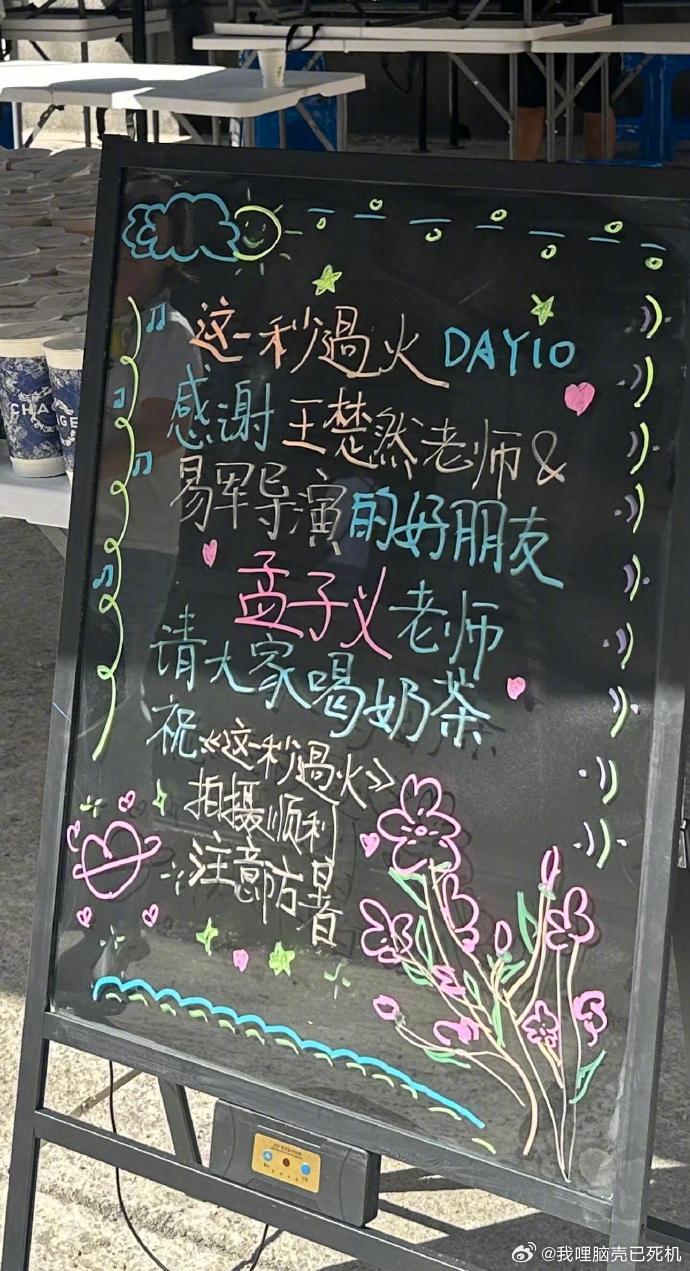 这一秒過火 DAY10
感谢王楚然老师&
易军导演的好朋友
孟子义老师
请大家喝奶茶
祝《这一秒過火》
拍摄顺利
注意防暑
CHA
GE
@我哩脑壳已死机